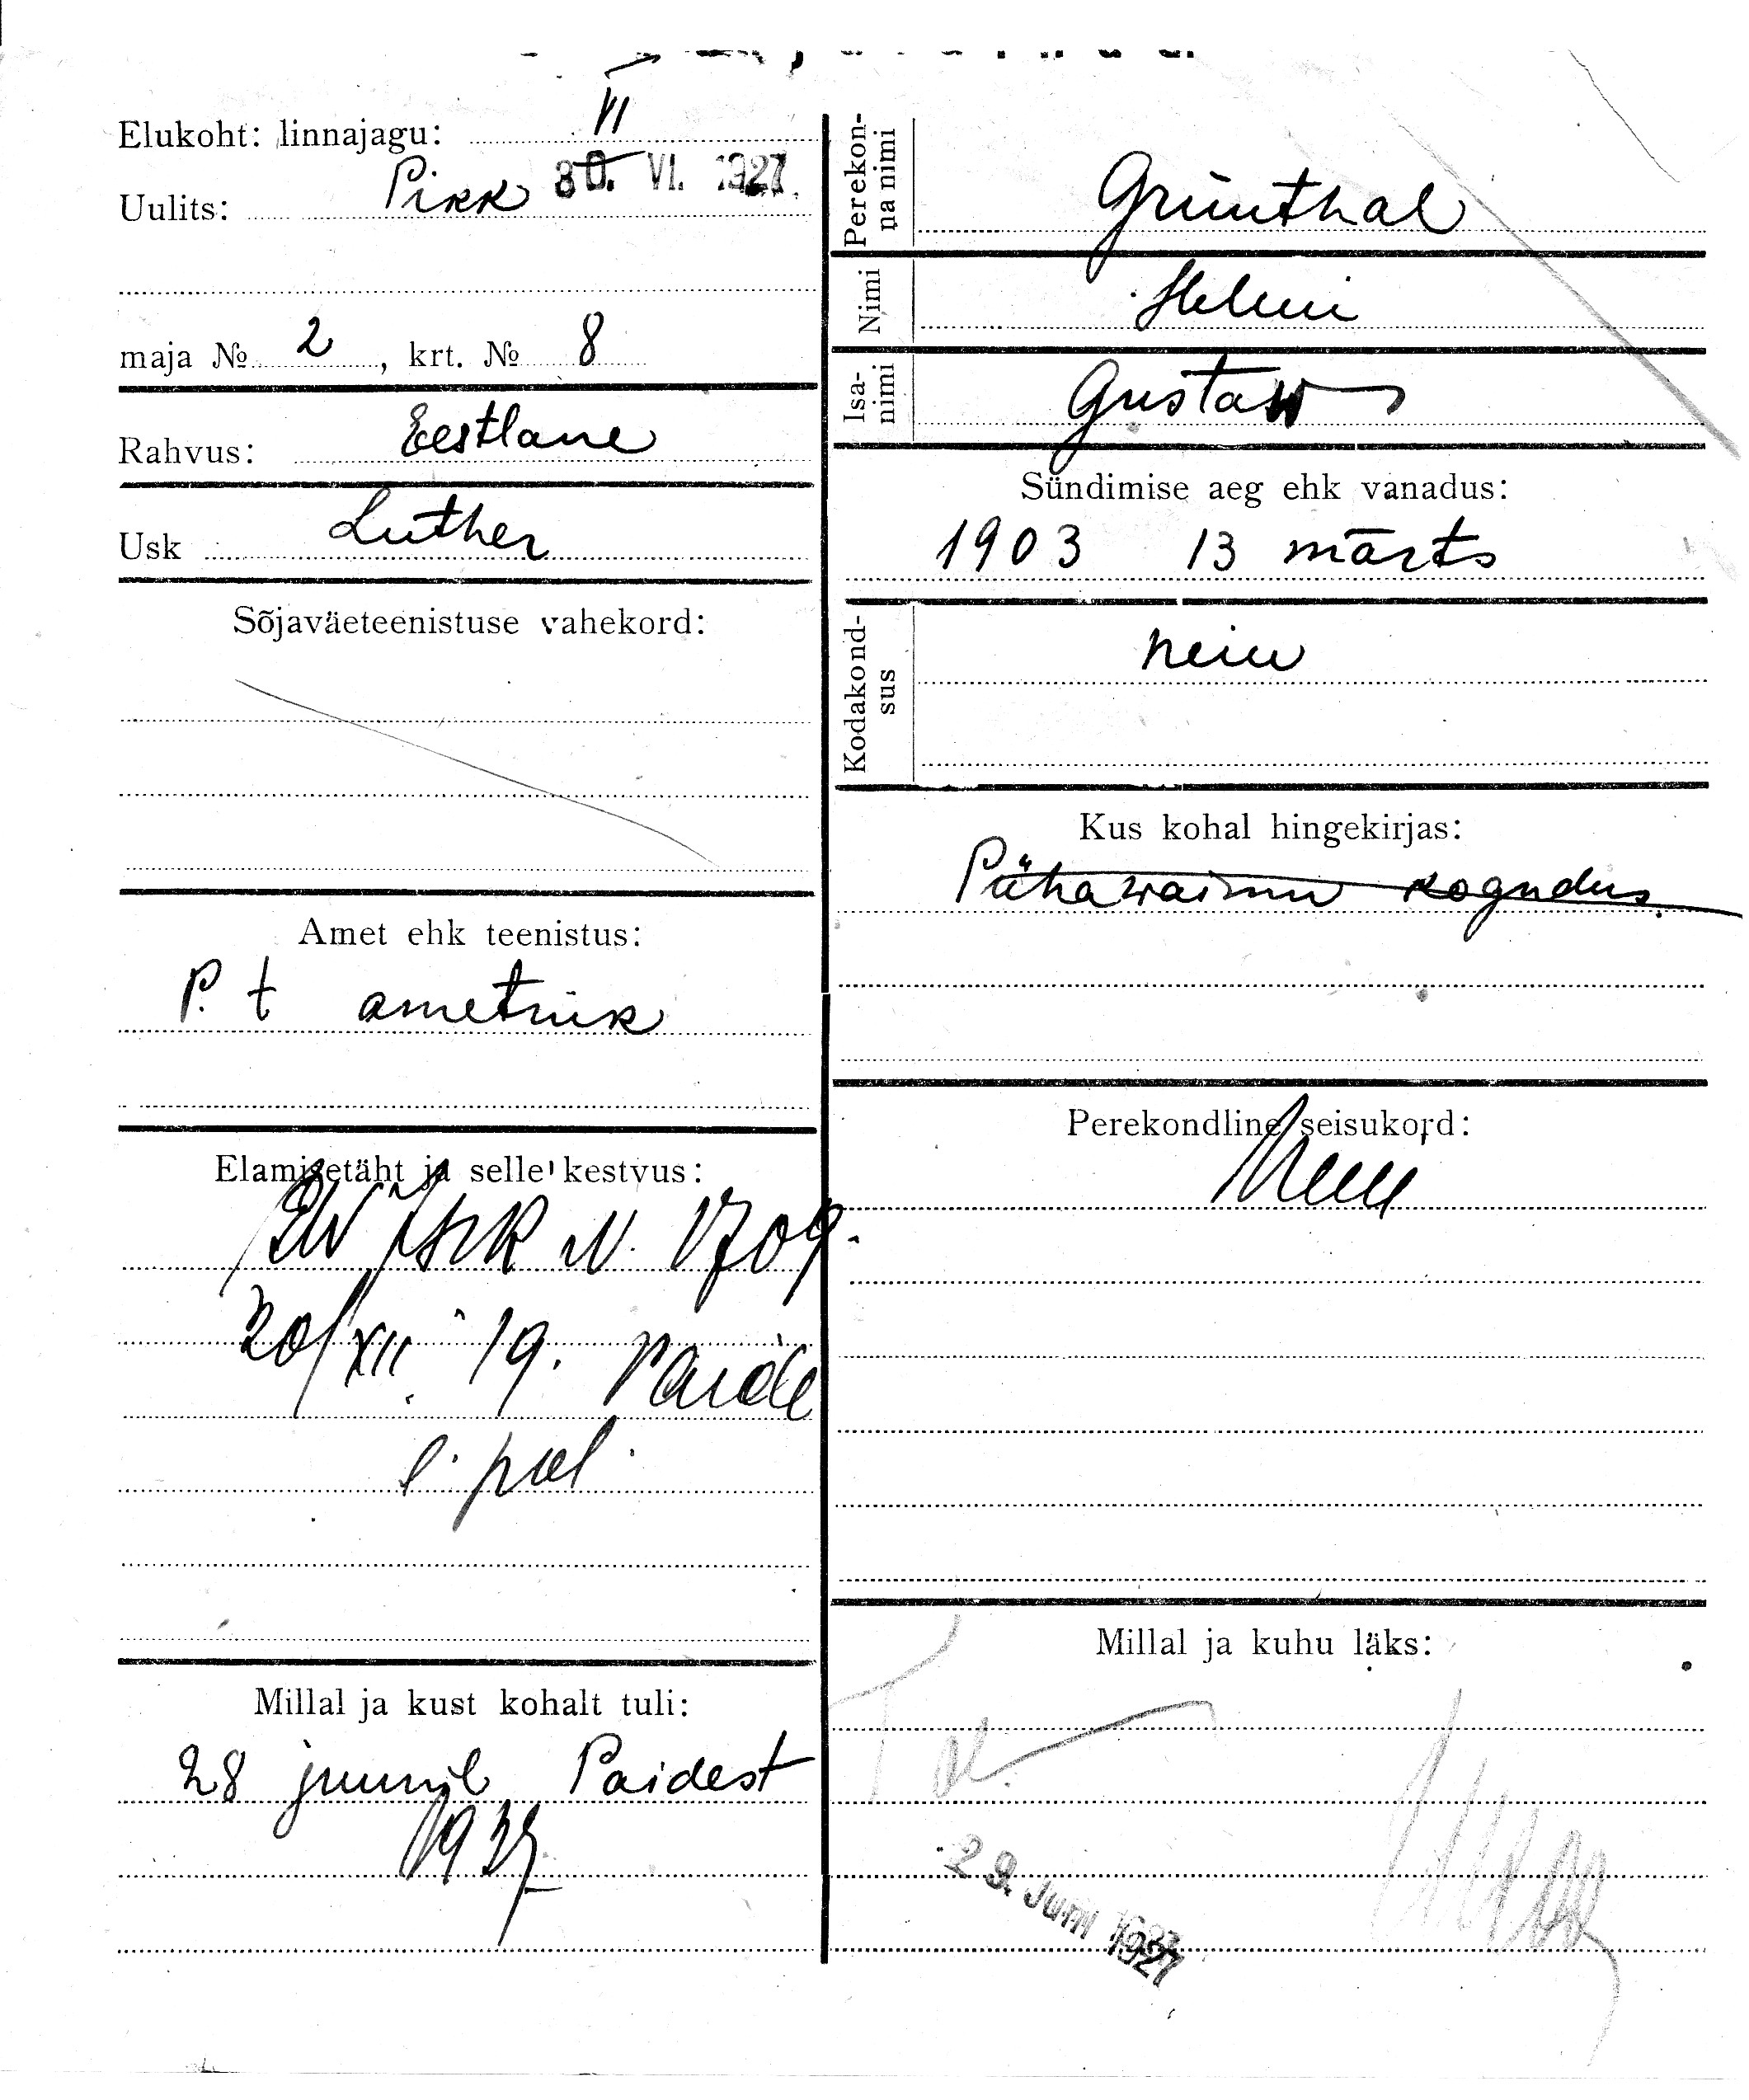 Elukoht: linnajagu: VI
Uulits: Pikk 30. VI. 1927.
maja № 2, krt. № 8
Rahvus: Eestlane
Usk Luther
Sõjaväeteenistuse vahekord:
Amet ehk teenistus:
P. t ametnik
Elamisetäht ja selle kestvus:
N. 1709.
20/XII 19. Paide
l. pol.
Millal ja kust kohalt tuli:
28 juunil Paidest
1927
Perekonna nimi
Grünthal
Nimi
Helmi
Isanimi
Gustaw
Sündimise aeg ehk vanadus:
1903 13 märts
Kodakondsus
neiu
Kus kohal hingekirjas:
Pühawaimu kogudus.
Perekondline seisukord:
Neiu
Millal ja kuhu läks:
29. Juni 1927